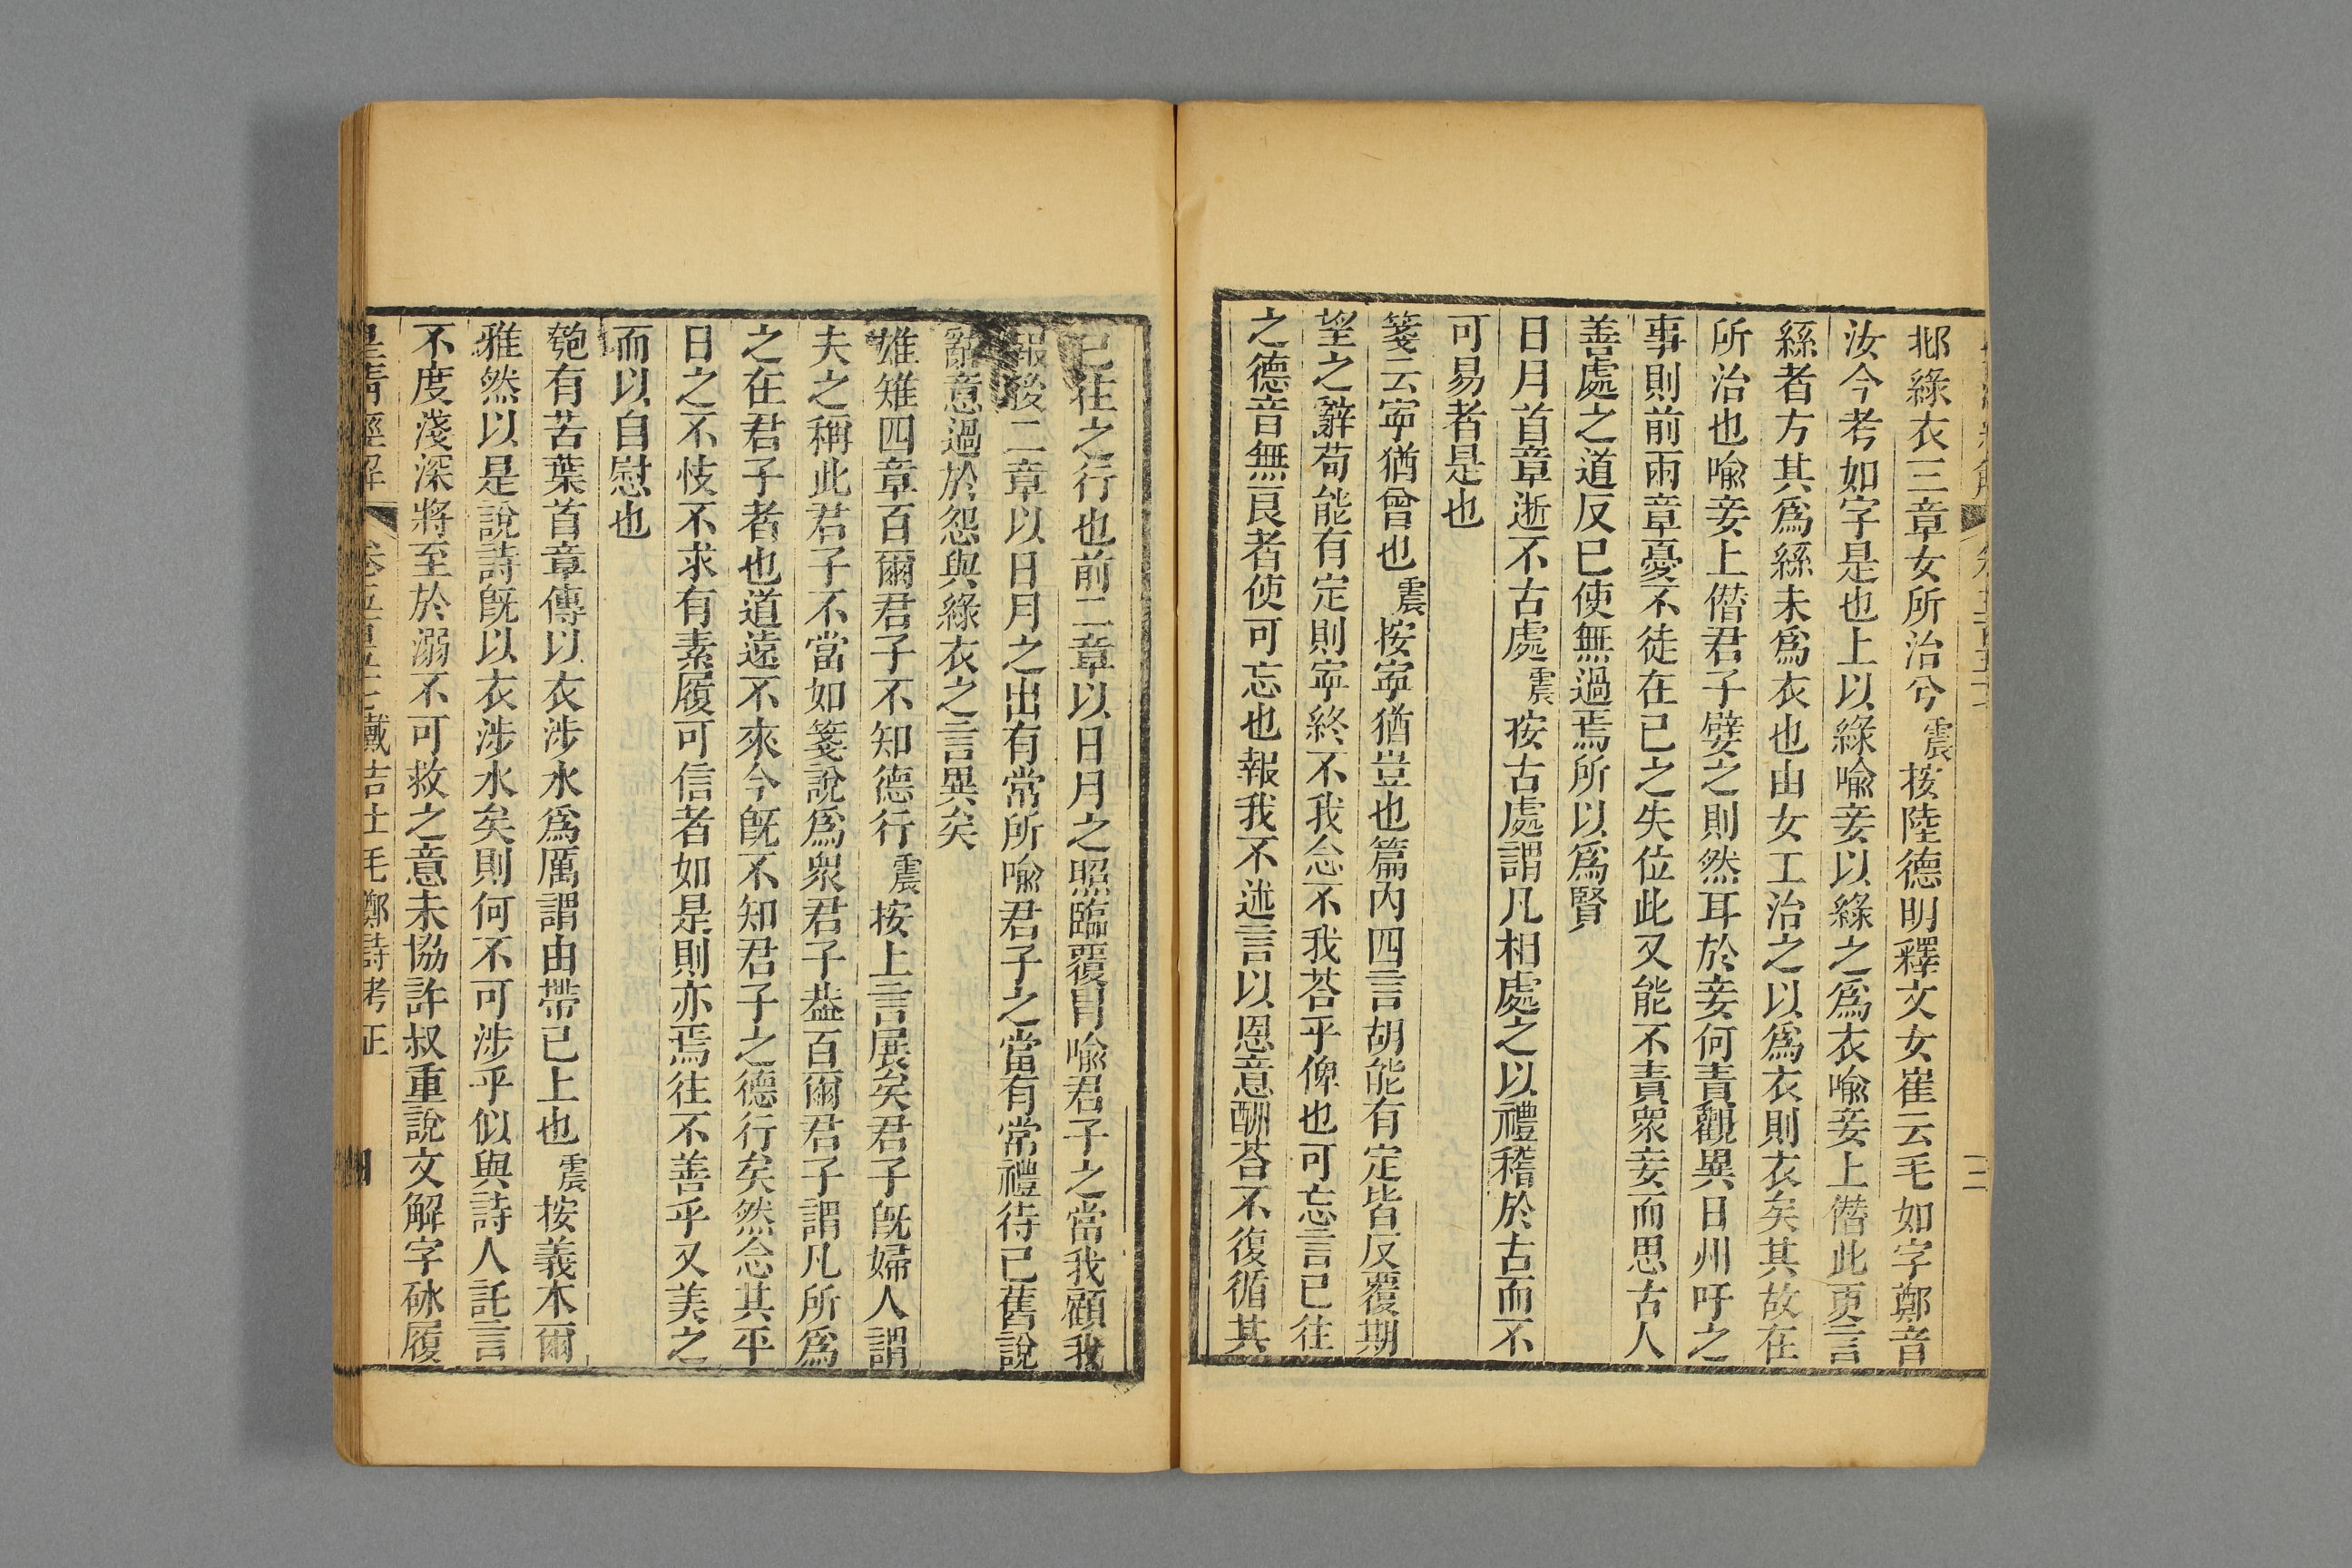 邶綠衣三章女所治兮震按陸德明釋文女崔云毛如字鄭音
汝今考如字是也上以綠喻妾以綠之爲衣喻妾上僭此更言
絲者方其爲絲未爲衣也由女工治之以爲衣則衣矣其故在
所治也喻妾上僭君子嬖之則然耳於妾何責觀異日州吁之
事則前兩章憂不徒在已之失位此又能不責衆妾而思古人
善處之道反已使無過焉所以爲賢
日月首章逝不古處震按古處謂凡相處之以禮稽於古而不
可易者是也
箋云寕猶曾也震按寕猶豈也篇内四言胡能有定皆反覆期
望之辭苟能有定則寕終不我念不我荅乎俾也可忘言已往
之德音無良者使可忘也報我不述言以恩意酬荅不復循其
已往之行也前二章以日月之照臨覆冒喻君子之當我顧我
報後二章以日月之出有常所喻君子之當有常禮待已舊說
辭意過於怨與綠衣之言異矣
雄雉四章百爾君子不知德行震按上言展矣君子旣婦人謂
夫之稱此君子不當如箋說爲衆君子葢百爾君子謂凡所爲
之在君子者也道遠不來今旣不知君子之德行矣然念其平
日之不忮不求有素履可信者如是則亦焉往不善乎又美之
而以自慰也
匏有苦葉首章傳以衣涉水爲厲謂由帶已上也震按義本爾
雅然以是說詩旣以衣涉水矣則何不可涉乎似與詩人託言
不度淺深將至於溺不可救之意未協許叔重說文解字砅履
皇淸經解 卷五百五十七戴吉士毛鄭詩考正 四